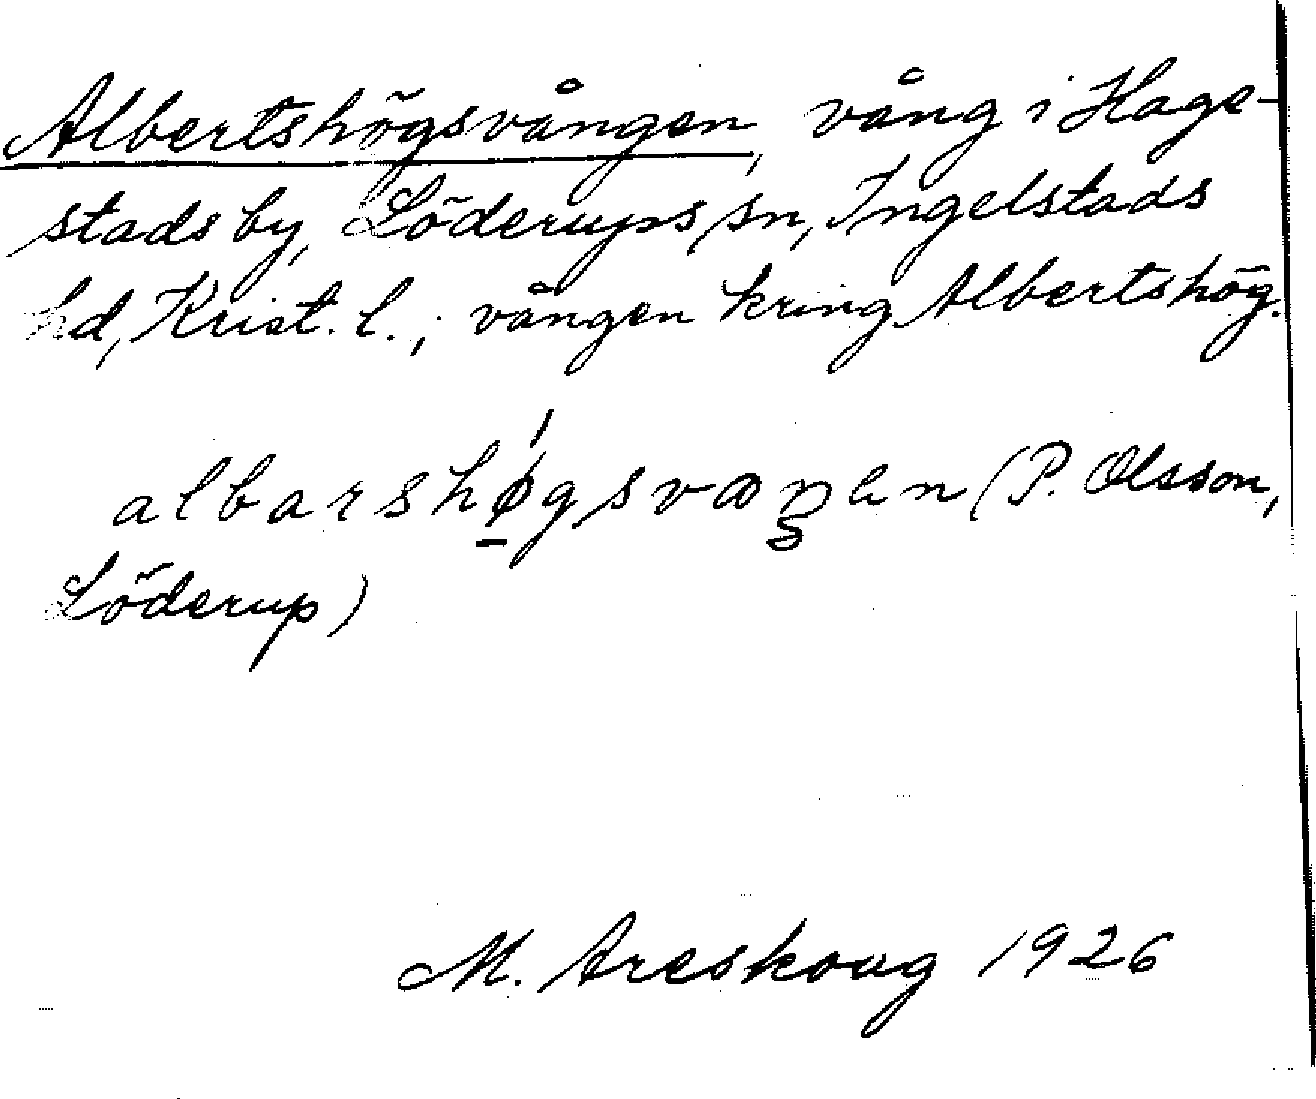 Albertshögsvången, vång i Hage-
stads by, Löderups sn, Ingelstads
hd, Krist. l.; vången kring Albertshög.
albarshǿ̱gsvaŋen (P. Olsson,
Löderup)
M. Areskoug 1926